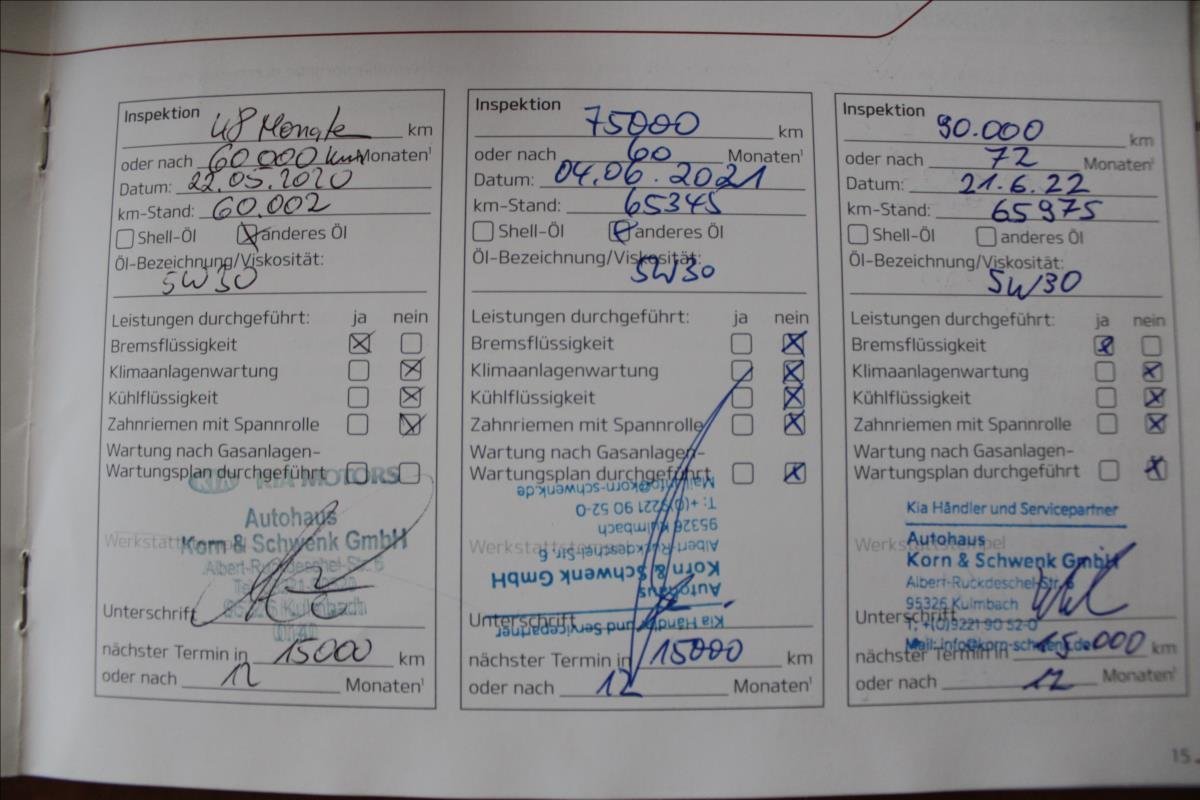 Inspektion 48 Monate km
oder nach 60.000 km Monaten¹
Datum: 22.05.2020
km-Stand: 60.002
Shell-Öl anderes Öl
Öl-Bezeichnung/Viskosität:
5W30
Leistungen durchgeführt: ja nein
Bremsflüssigkeit
Klimaanlagenwartung
Kühlflüssigkeit
Zahnriemen mit Spannrolle
Wartung nach Gasanlagen-
Wartungsplan durchgeführt
KIA KIA MOTORS
Autohaus
Werkstattstempel
Korn & Schwenk GmbH
Albert-Ruckdeschel-Str. 6
95326 Kulmbach
Unterschrift
nächster Termin in 15000 km
oder nach 12 Monaten¹
Inspektion 75000 km
oder nach 60 Monaten¹
Datum: 04.06.2021
km-Stand: 65345
Shell-Öl anderes Öl
Öl-Bezeichnung/Viskosität:
5W30
Leistungen durchgeführt: ja nein
Bremsflüssigkeit
Klimaanlagenwartung
Kühlflüssigkeit
Zahnriemen mit Spannrolle
Wartung nach Gasanlagen-
Wartungsplan durchgeführt
Werkstattstempel
Kia Händler und Servicepartner
Autohaus
Korn & Schwenk GmbH
Albert-Ruckdeschel-Str. 6
95326 Kulmbach
T: +(0)9221 90 52-0
Mail: info@korn-schwenk.de
Unterschrift
nächster Termin in 15000 km
oder nach 12 Monaten¹
Inspektion 90.000 km
oder nach 72 Monaten¹
Datum: 21.6.22
km-Stand: 65975
Shell-Öl anderes Öl
Öl-Bezeichnung/Viskosität:
5W30
Leistungen durchgeführt: ja nein
Bremsflüssigkeit
Klimaanlagenwartung
Kühlflüssigkeit
Zahnriemen mit Spannrolle
Wartung nach Gasanlagen-
Wartungsplan durchgeführt
Kia Händler und Servicepartner
Autohaus
Werkstattstempel
Korn & Schwenk GmbH
Albert-Ruckdeschel-Str. 6
95326 Kulmbach
Unterschrift
T: +(0)9221 90 52-0
Mail: info@korn-schwenk.de
nächster Termin in 15.000 km
oder nach 12 Monaten¹
15